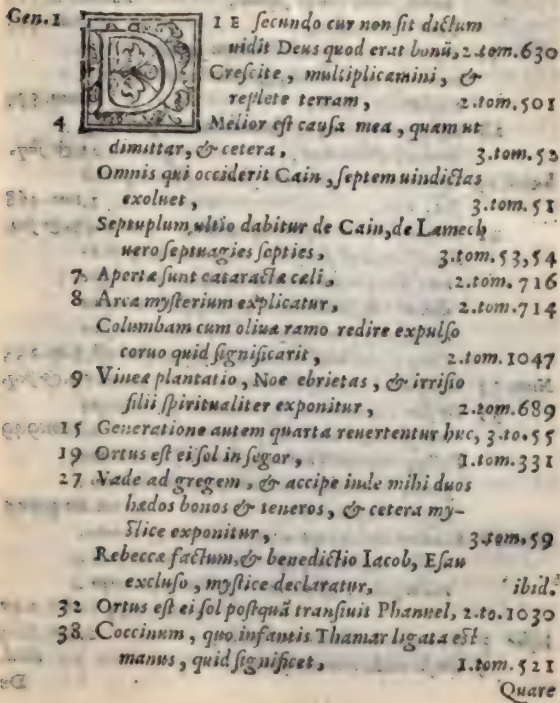 Gen.1 DIE secundo cur non sit dictum
uidit Deus quod erat bonũ, 2.tom.630
Crescite, multiplicamini, &
replete terram, 2.tom.501
4 Melior est causa mea, quam ut
dimittar, & cetera, 3.tom.52
Omnis qui occiderit Cain, septem uindictas
exoluet, 3.tom.51
Septuplum ultio dabitur de Cain, de Lamech
uero septuagies septies, 3.tom.53,54
7 Apertæ sunt cataractæ cæli, 2.tom.716
8 Arcæ mysterium explicatur, 2.tom.714
Columbam cum oliuæ ramo redire expulso
coruo quid significarit, 2.tom.1047
9 Vineæ plantatio, Noe ebrietas, & irrisio
filii spiritualiter exponitur, 2.tom.689
15 Generatione autem quarta reuertentur huc, 3.to.55
19 Ortus est ei sol in segor, 1.tom.331
27 Vade ad gregem, & accipe inde mihi duos
hædos bonos & teneros, & cetera my-
stice exponitur, 3.tom.59
Rebeccæ factum, & benedictio Iacob, Esau
excluso, mystice declaratur, ibid.
32 Ortus est ei sol postquã transiuit Phanuel, 2.to.1030
38 Coccinum, quo infantis Thamar ligata est
manus, quid significet, 1.tom.521
Quare